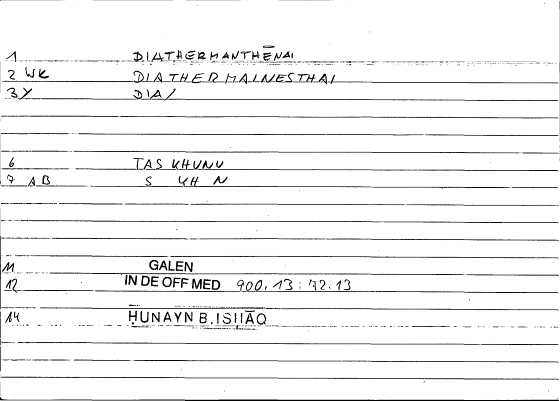 1 DIATHERMANTHĒNAI
2 WK DIATHERMAINESTHAI
3 Y DIA/
6 TASKHUNU
7 AB S KH N
11 GALEN
12 IN DE OFF MED 900,13:72.13
14 ḤUNAYN B. ISḤĀQ